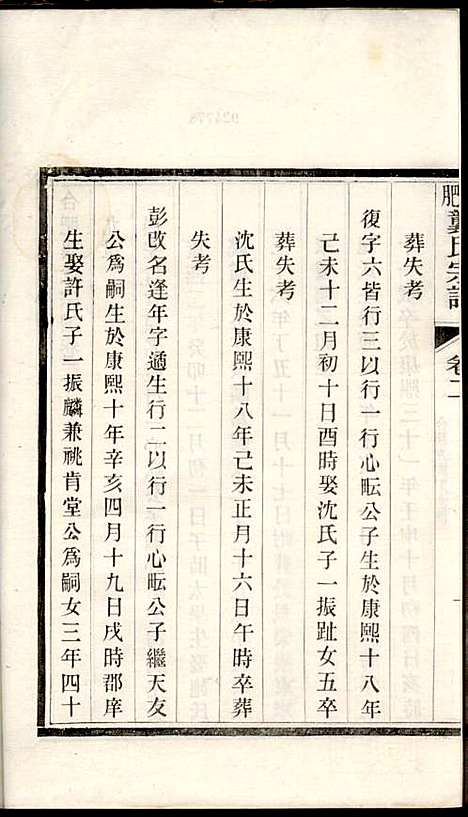 肥龔氏宗譜
卷二
葬失考
復字六皆行三以行一行心畇公子生於康熙十八年
己未十二月初十日酉時娶沈氏子一振趾女五卒
葬失考
沈氏生於康熙十八年己未正月十六日午時卒葬
失考
彭改名逢年字遹生行二以行一行心畇公子繼天友
公為嗣生於康熙十年辛亥四月十九日戌時郡庠
生娶許氏子一振麟兼祧肯堂公為嗣女三年四十